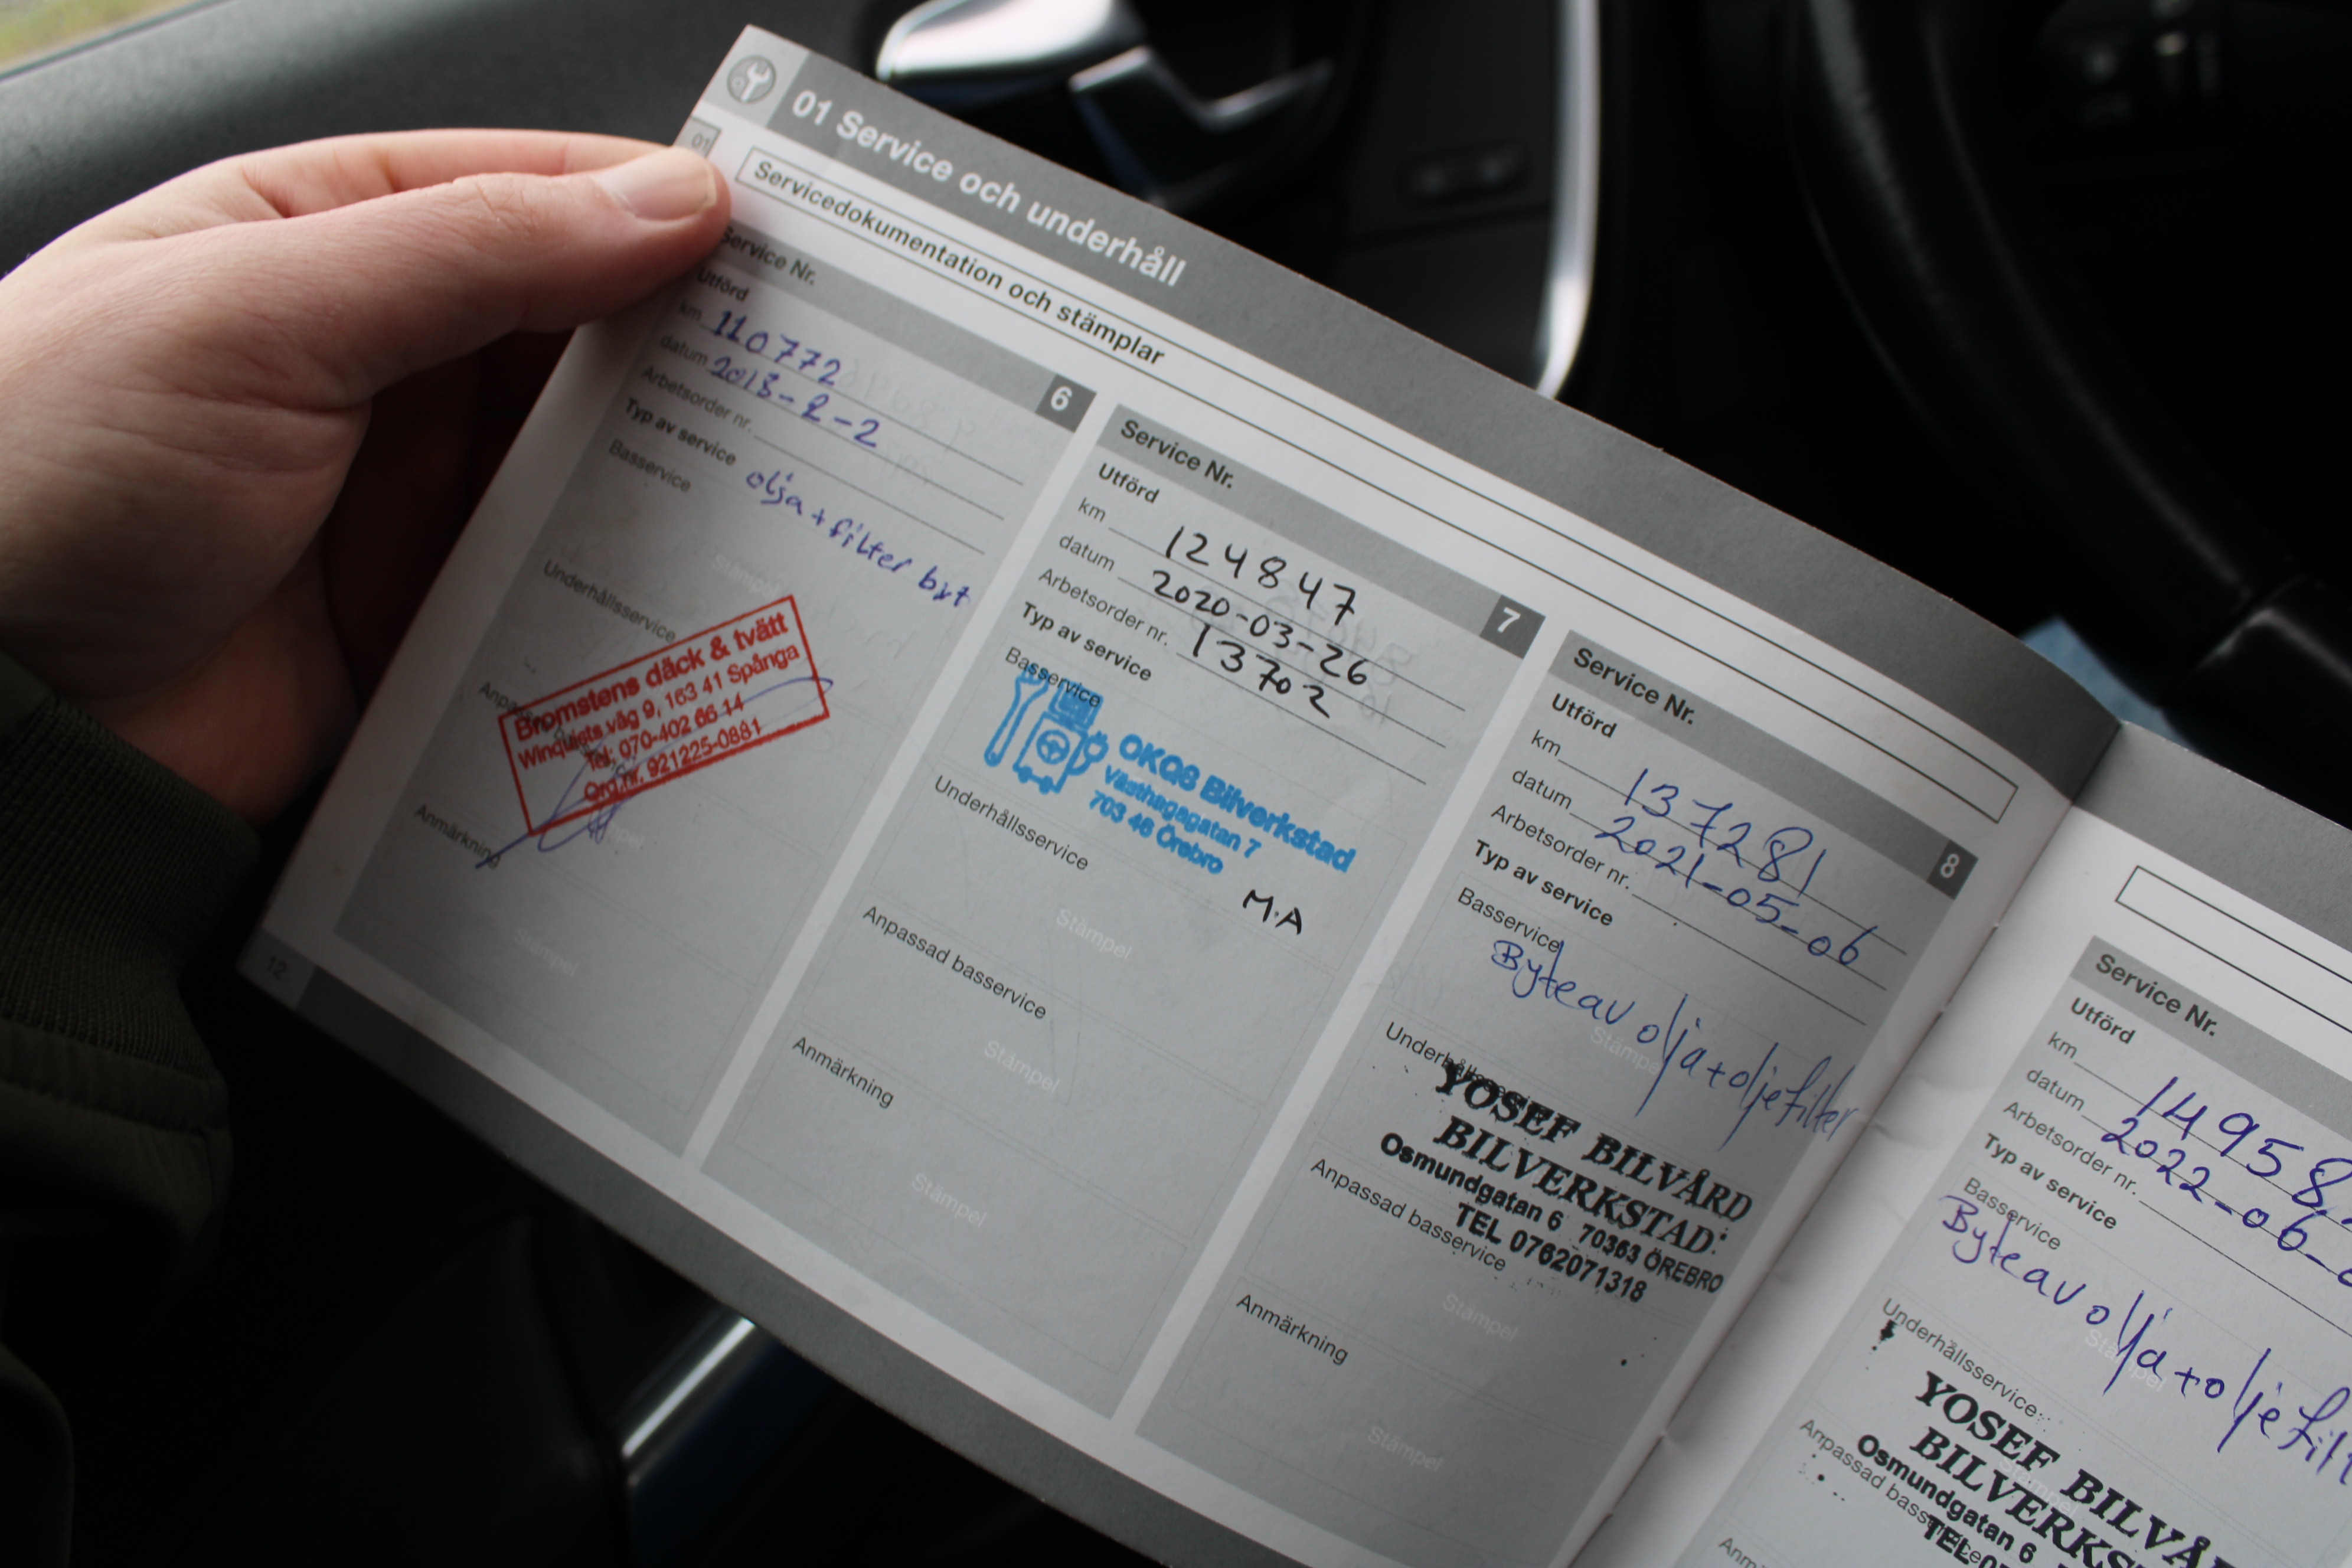 01 Service och underhåll
01
Servicedokumentation och stämplar
Service Nr.
6
Utförd
km 110772
datum
Arbetsorder nr.
Typ av service
Basservice
olja + filter byt
Stämpel
Underhållsservice
Bromstens däck & tvätt
Winquists väg 9, 163 41 Spånga
Tel: 070-402 66 14
Org.nr. 921225-0881
Stämpel
Anmärkning
Stämpel
12
Service Nr.
7
Utförd
km 124847
datum 2020-03-26
Arbetsorder nr. 13702
Typ av service
Basservice
OKQ8 Bilverkstad
Västhagagatan 7
703 46 Örebro
M.A
Underhållsservice
Stämpel
Anpassad basservice
Stämpel
Anmärkning
Stämpel
Service Nr.
8
Utförd
km 137281
datum 2021-05-06
Arbetsorder nr.
Typ av service
Basservice
Byte av olja + oljefilter
Stämpel
Underhållsservice
YOSEF BILVÅRD
BILVERKSTAD
Osmundgatan 6 70363 ÖREBRO
TEL 0762071318
Anpassad basservice
Stämpel
Anmärkning
Stämpel
Service Nr.
Utförd
km 14958
datum 2022-06-
Arbetsorder nr.
Typ av service
Basservice
Byte av olja + oljefilt
Stämpel
Underhållsservice
YOSEF BILVÅ
BILVERKS
Osmundgatan 6
TEL
Stämpel
Anpassad basse
Anmä